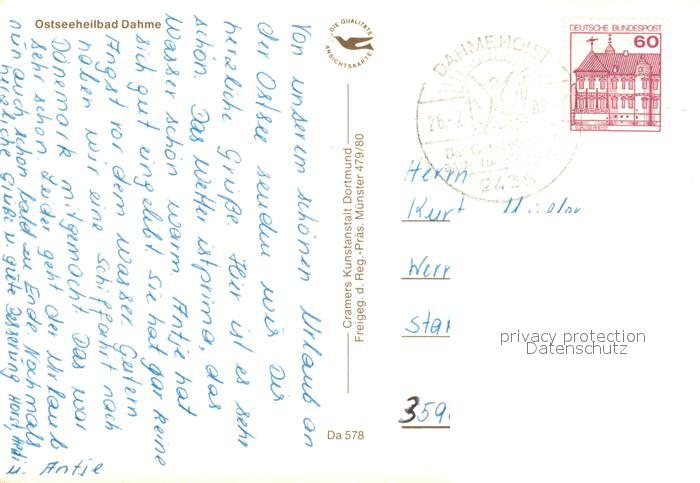 Ostseeheilbad Dahme
DIE QUALITÄTS
ANSICHTSKARTE
DEUTSCHE BUNDESPOST
60
DAHME, HOLST
26.-7
82
2435
Von unserem schönen Urlaub an
der Ostsee senden wir Dir
herzliche Grüße. Hier ist es sehr
schön. Das Wetter ist prima, das
Wasser schön warm Antje hat
sich gut eingelebt sie hat gar keine
Angst vor dem Wasser. Gestern
haben wir eine Schiffahrt nach
Dänemark mitgemacht Das war
sehr schön Leider geht der Urlaub
nun auch schon bald zu Ende Nochmals
herzliche Grüße u. gute Besserung Horst,
u. Antje
Cramers Kunstanstalt Dortmund
Freigeg. d. Reg.-Präs. Münster 479/80
Da 578
Herrn
Kurt
Wern
Star
359
privacy protection
Datenschutz